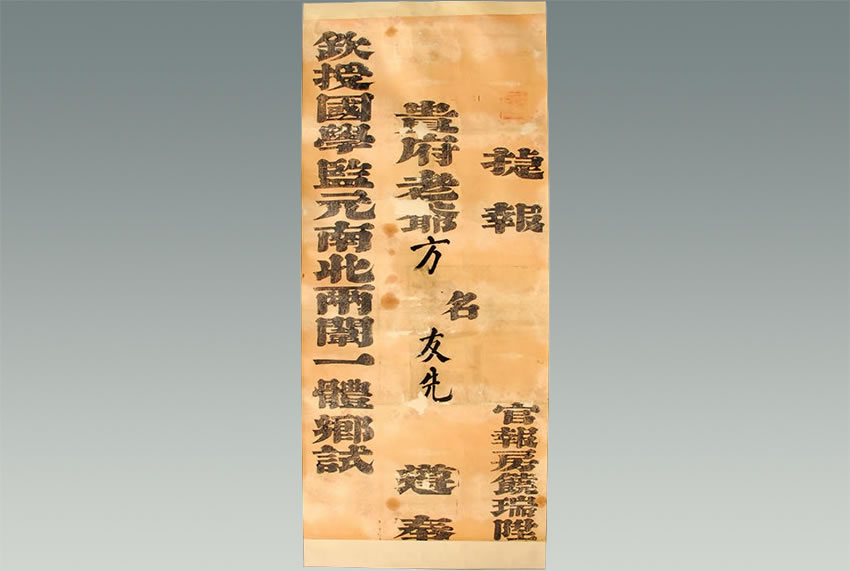 捷報
官報房饒瑞陞
貴府老耶方名友先
遵奉
欽授國學監元南北兩闈一體鄉試